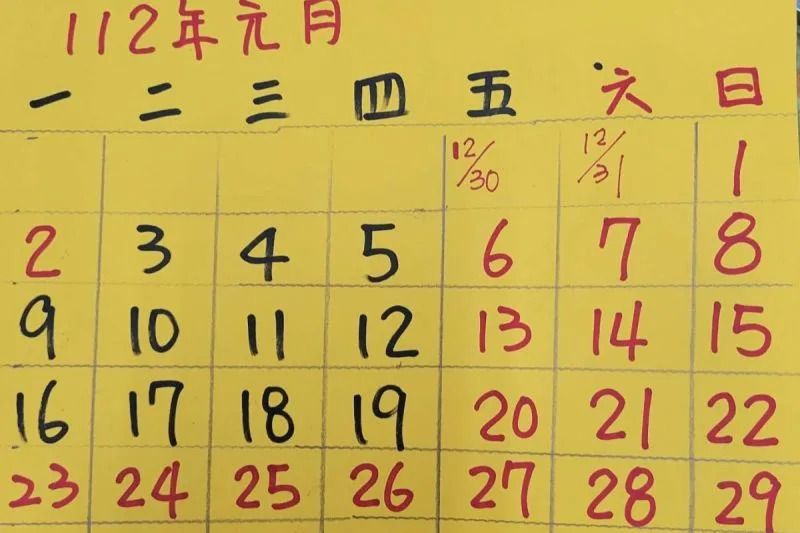 112年元月
一 二 三 四 五 六 日
12/30 12/31 1
2 3 4 5 6 7 8
9 10 11 12 13 14 15
16 17 18 19 20 21 22
23 24 25 26 27 28 29